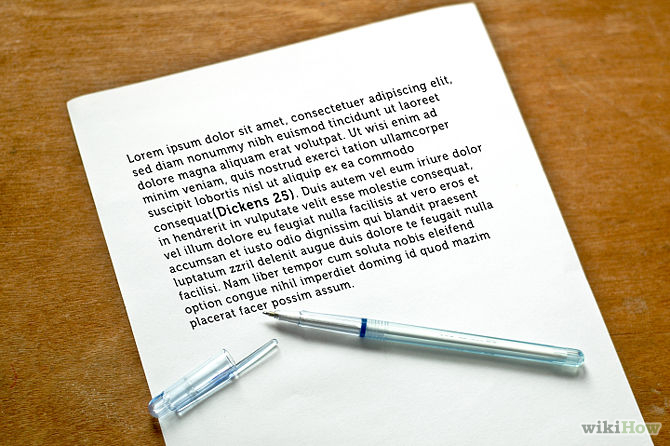 Lorem ipsum dolor sit amet, consectetuer adipiscing elit,
sed diam nonummy nibh euismod tincidunt ut laoreet
dolore magna aliquam erat volutpat. Ut wisi enim ad
minim veniam, quis nostrud exerci tation ullamcorper
suscipit lobortis nisl ut aliquip ex ea commodo
consequat(Dickens 25). Duis autem vel eum iriure dolor
in hendrerit in vulputate velit esse molestie consequat,
vel illum dolore eu feugiat nulla facilisis at vero eros et
accumsan et iusto odio dignissim qui blandit praesent
luptatum zzril delenit augue duis dolore te feugait nulla
facilisi. Nam liber tempor cum soluta nobis eleifend
option congue nihil imperdiet doming id quod mazim
placerat facer possim assum.
wikiHow